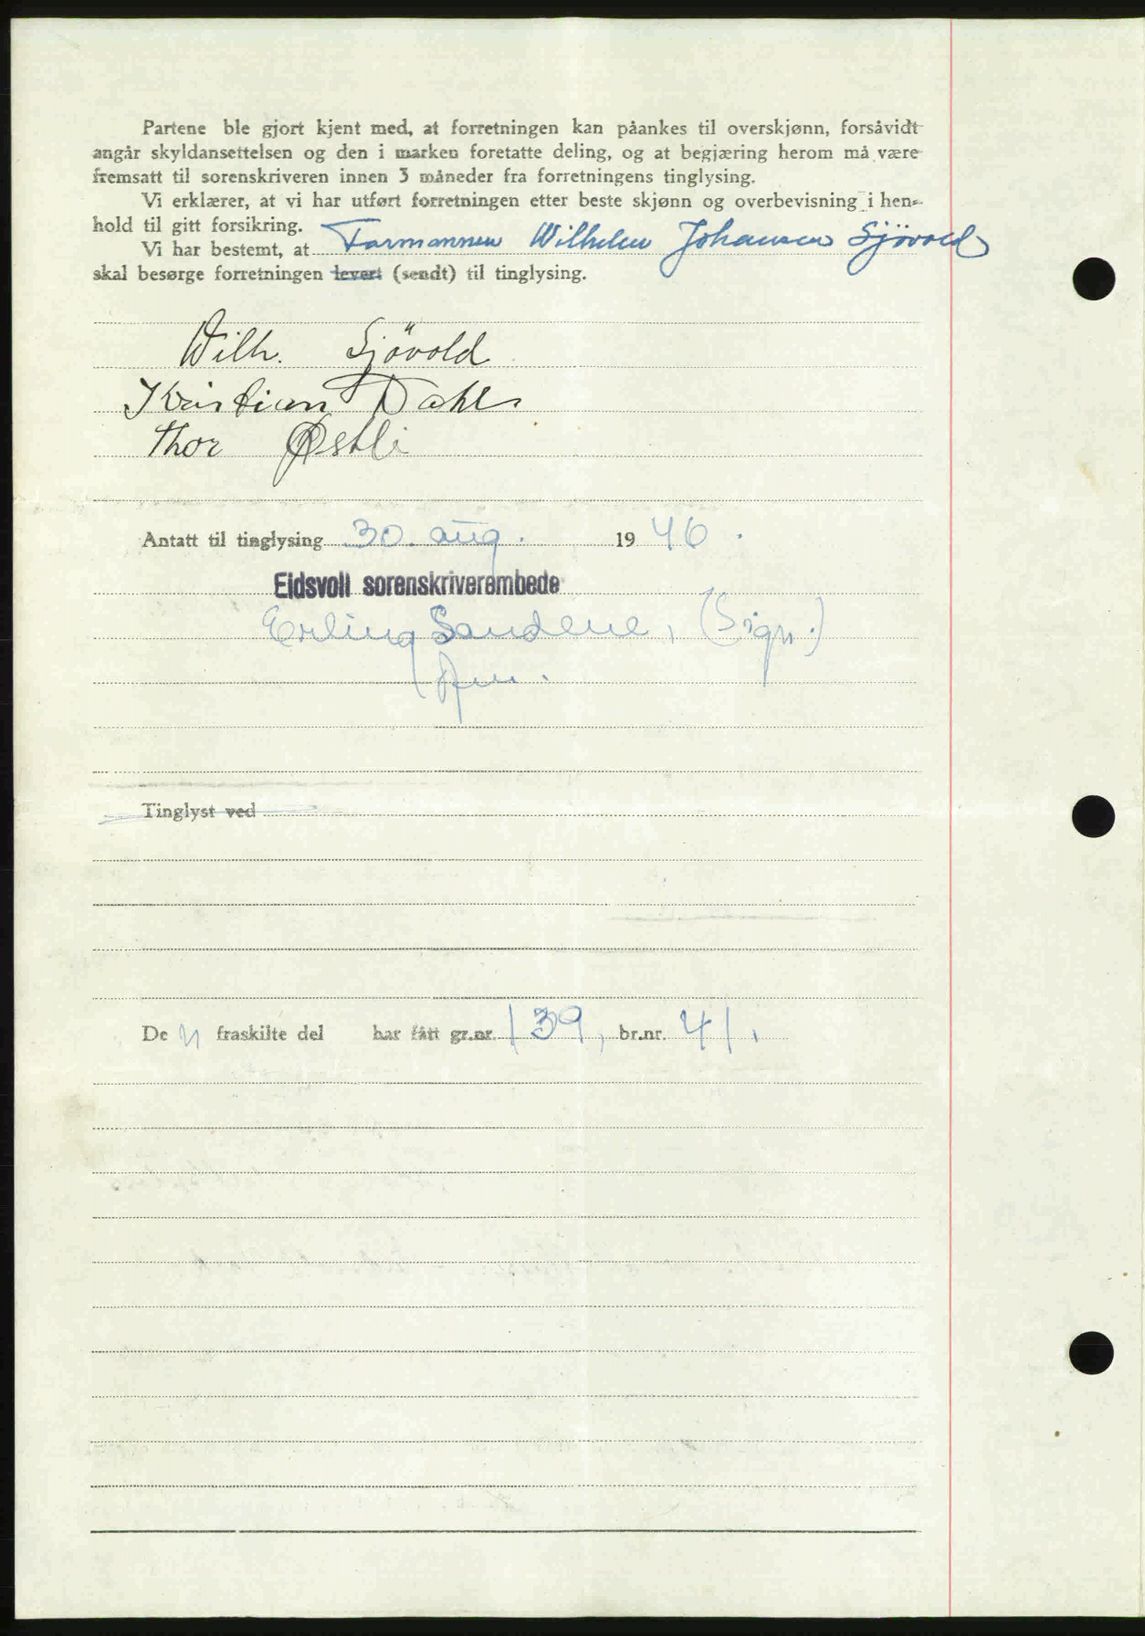 Partene ble gjort kjent med, at forretningen kan påankes til overskjønn, forsåvidt
angår skyldansettelsen og den i marken foretatte deling, og at begjæring herom må være
fremsatt til sorenskriveren innen 3 måneder fra forretningens tinglysing.
Vi erklærer, at vi har utført forretningen etter beste skjønn og overbevisning i hen-
hold til gitt forsikring.
Vi har bestemt, at Formannen Wilhelm Johansen Sjövold
skal besørge forretningen levert (sendt) til tinglysing.
Wilh. Sjövold
Kristian Dahl
Thor Østli
Antatt til tinglysing 30. aug. 1946.
Eidsvoll sorenskriverembede
Erling Sandene, (Sign.)
fm.
Tinglyst ved
De n fraskilte del har fått gr.nr. 139, br.nr. 41.